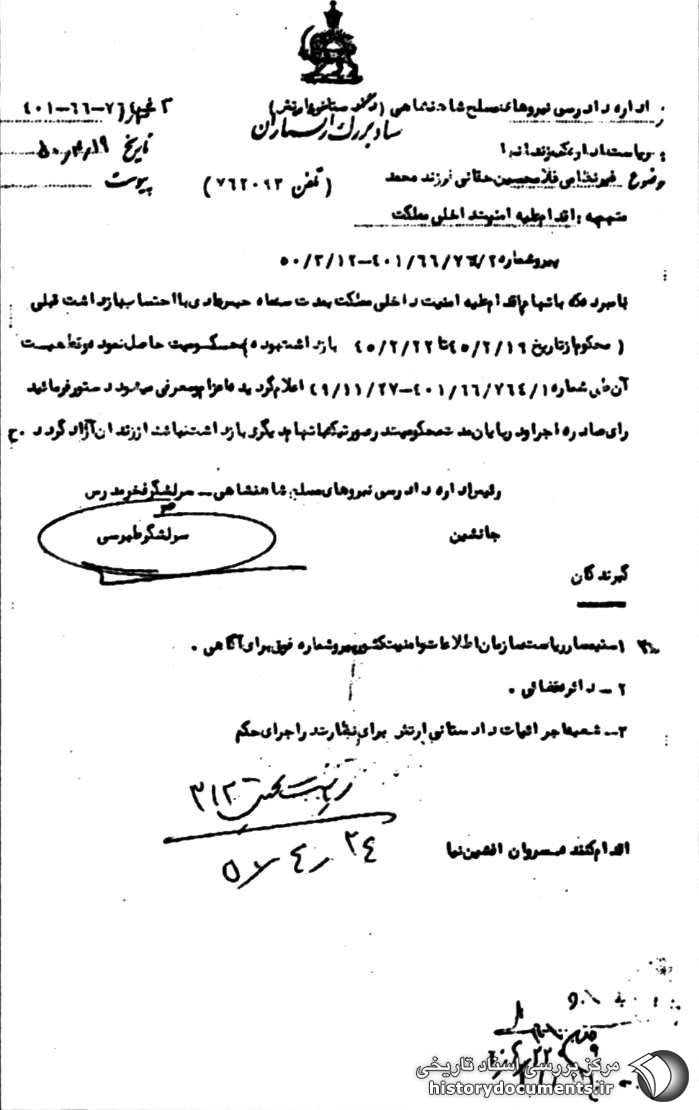 از اداره دادرسی نیروهای مسلح شاهنشاهی (دادستانی ارتش)
ستاد بزرگ ارتشتاران
شماره ۴۰۱-۶۶-۷۶
به ریاست اداره زندانها
تاریخ ۱۹ر۴ر۵۰
موضوع غیرنظامی غلامحسین حقانی فرزند محمد
(تلفن ۷۶۲۰۹۳)
پیوست
متهم به: اقدام علیه امنیت داخلی مملکت
پیرو شماره ۴۰۱/۶۶/۷۶۴/۲-۵۰/۳/۱۲
نامبرده که باتهام اقدام علیه امنیت داخلی مملکت بمدت سه ماه حبس عادی با احتساب بازداشت قبلی
(محکوم از تاریخ ۴۵/۲/۱۶ تا ۴۵/۲/۲۲ بازداشت بوده) محکومیت حاصل نموده و قطعیت
آن طی شماره ۴۰۱/۶۶/۷۶۴/۱-۴۹/۱۱/۲۷ اعلام گردیده اعزام و معرفی میشود دستور فرمائید
رای صادره اجرا و در پایان مدت محکومیت در صورتیکه باتهام دیگری بازداشت نباشد از زندان آزاد گردد. ح
رئیس اداره دادرسی نیروهای مسلح شاهنشاهی - سرلشگر فخر مدرس
جانشین
سرلشگر طبرسی
گیرندگان
۱ ستیمسار ریاست سازمان اطلاعات و امنیت کشور پیرو شماره فوق برای آگاهی.
۲- دائره قضائی.
۳- شعبه اجرائیات دادستانی ارتش برای نظارت در اجرای حکم
۳۱۲
۲۴ر۴ر۵۰
اقدام کننده سروان افشین نیا
مرکز بررسی اسناد تاریخی
historydocuments.ir